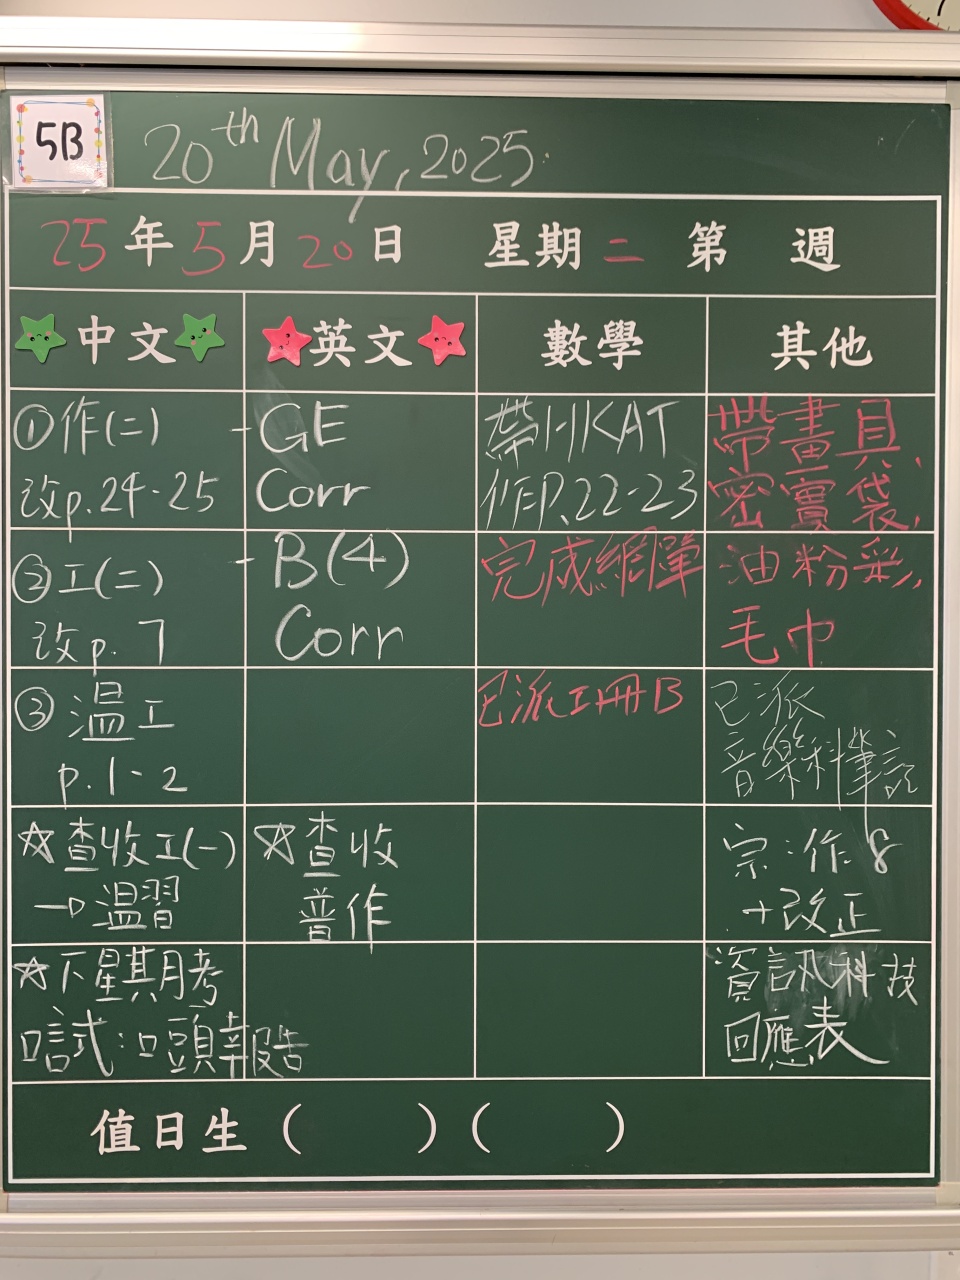 5B
20th May, 2025
25年5月20日 星期二 第 週
中文 英文 數學 其他
①作(二)
改p.24-25
- GE
Corr
帶HKAT
作P.22-23
帶畫具,
密實袋,
②工(二)
改p.7
- B(4)
Corr
完成網單
油粉彩,
毛巾
③溫工
p.1-2
已派工冊B
已派
音樂科筆記
☆查收工(一)
→溫習
☆查收
普作
宗:作8
+改正
☆下星其月考
口試:口頭報告
資訊科技
回應表
值日生( )( )